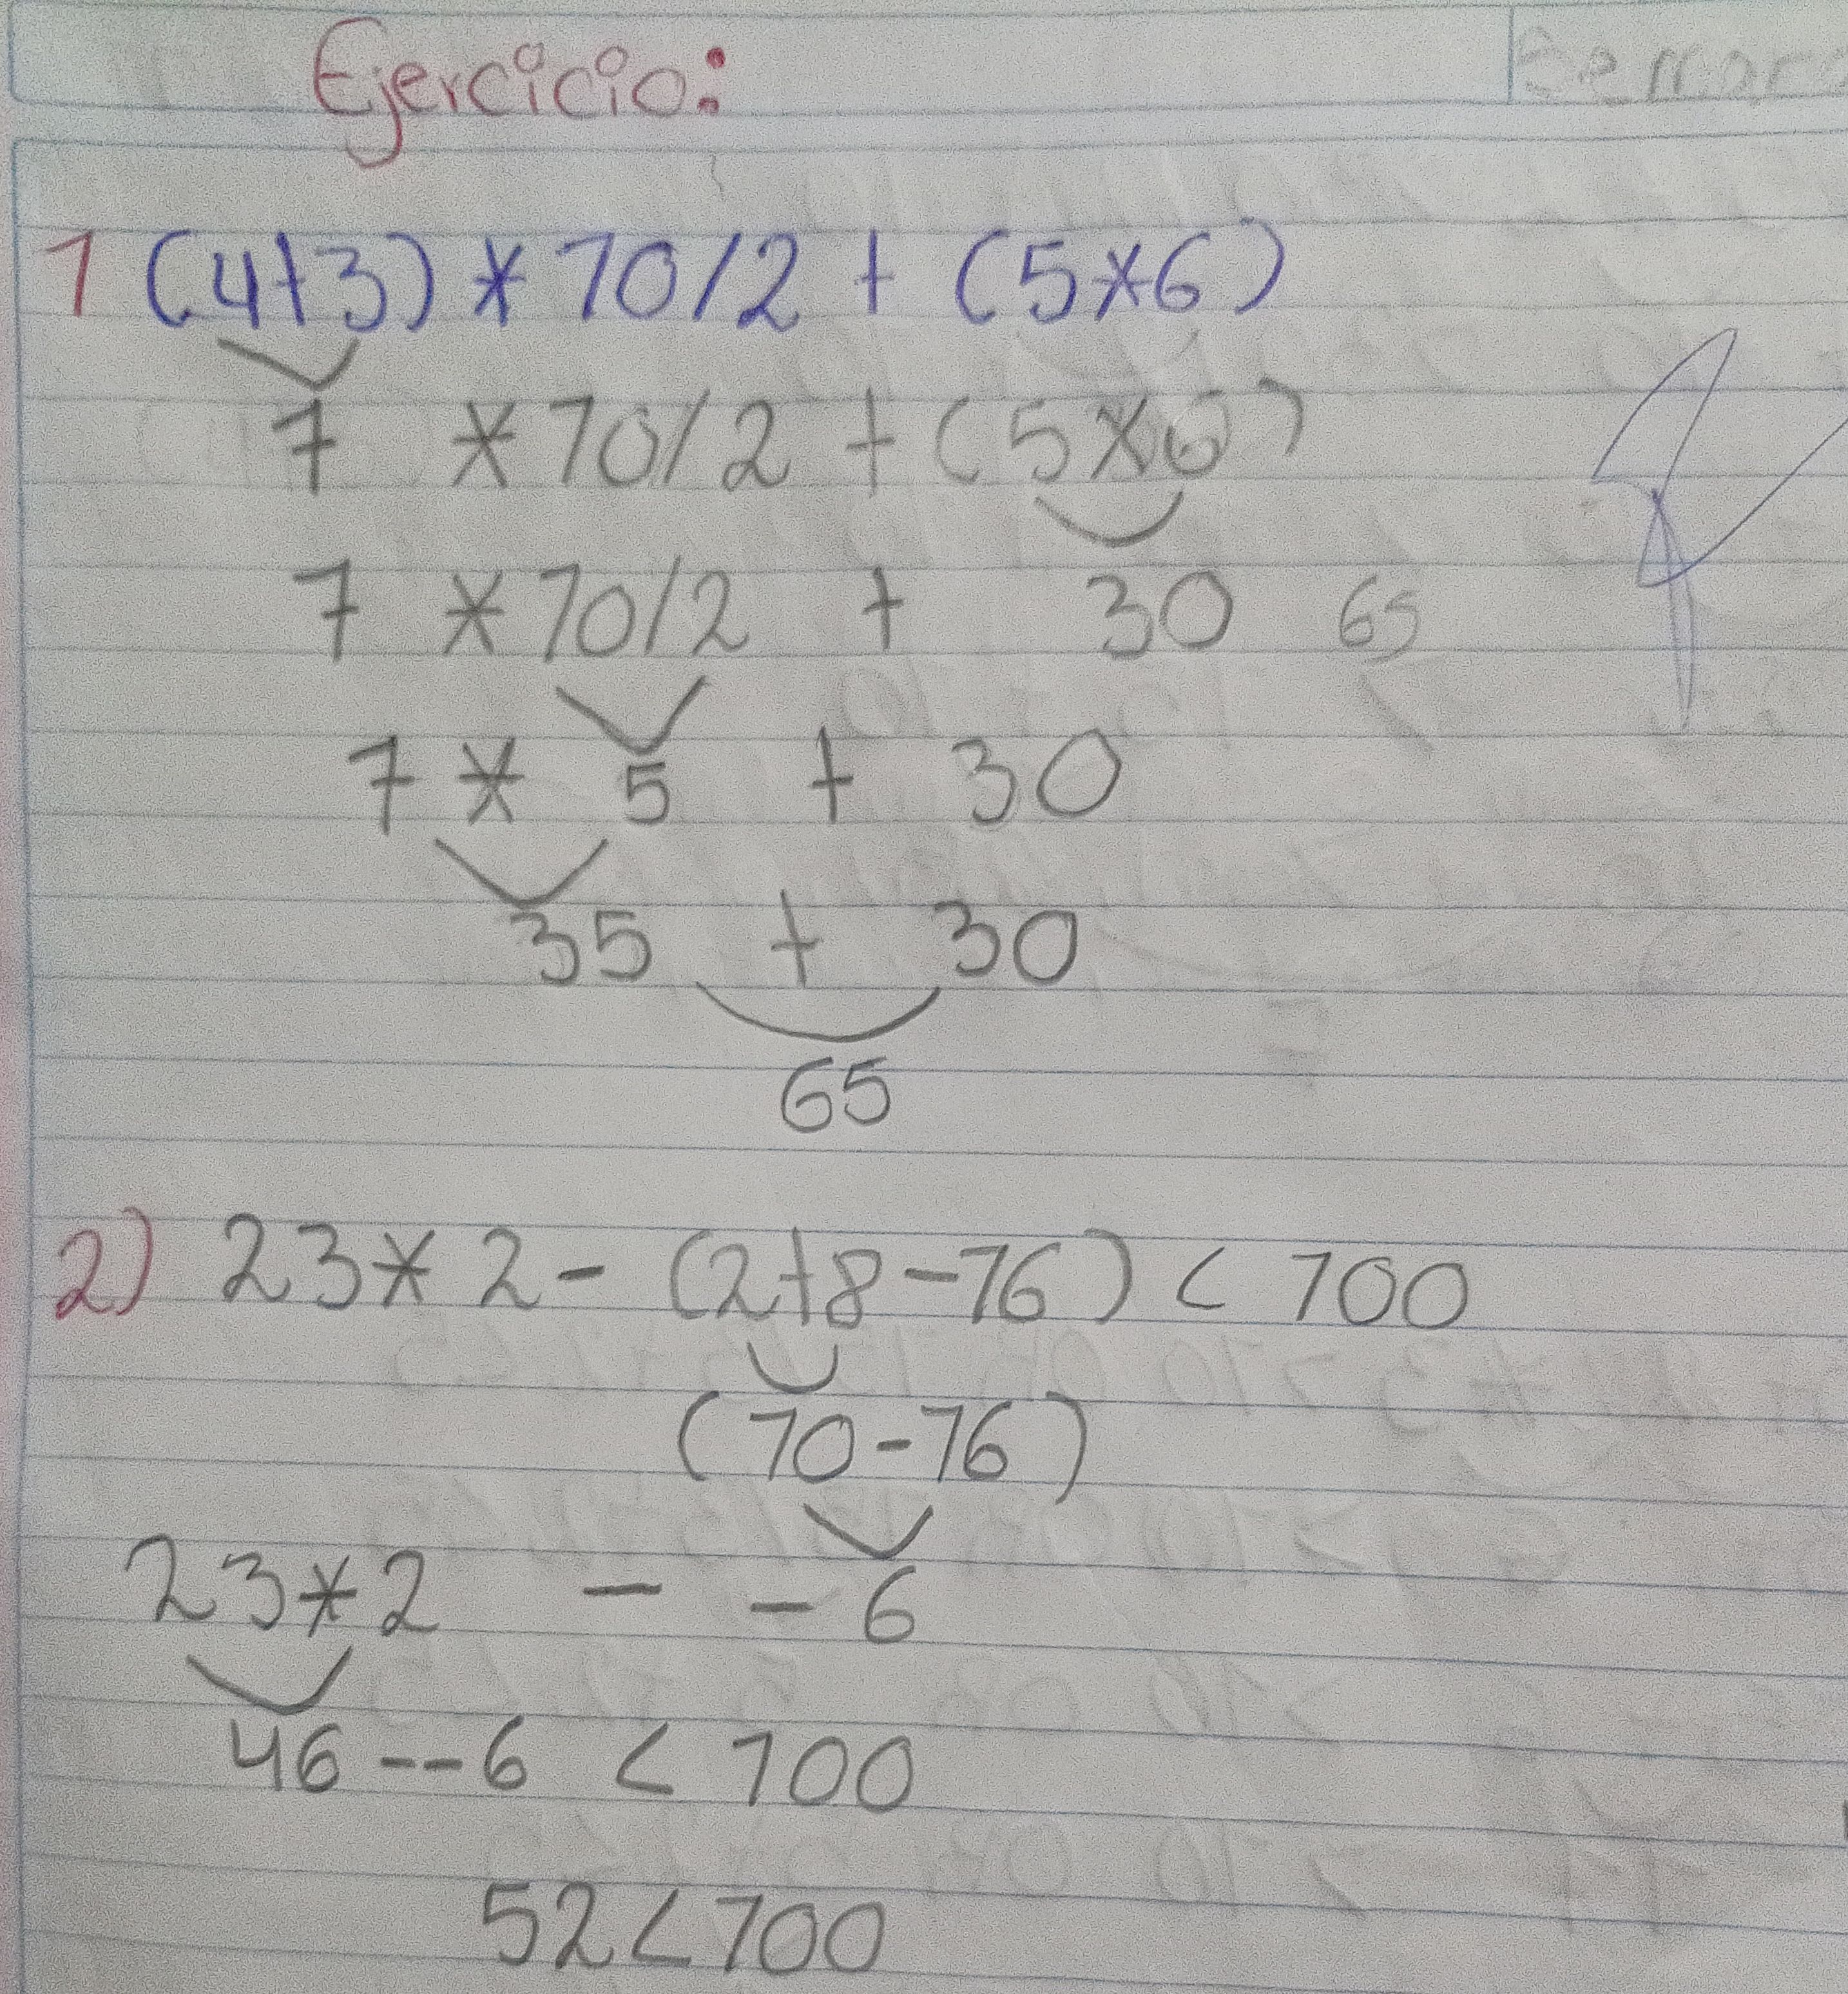 Ejercicio:
1 (4+3) * 10/2 + (5*6)
7 * 10/2 + (5*6)
7 * 10/2 + 30 65
7 * 5 + 30
35 + 30
65
2) 23 * 2 - (2+8-16) < 100
(10-16)
23*2 - -6
46 --6 < 100
52<100